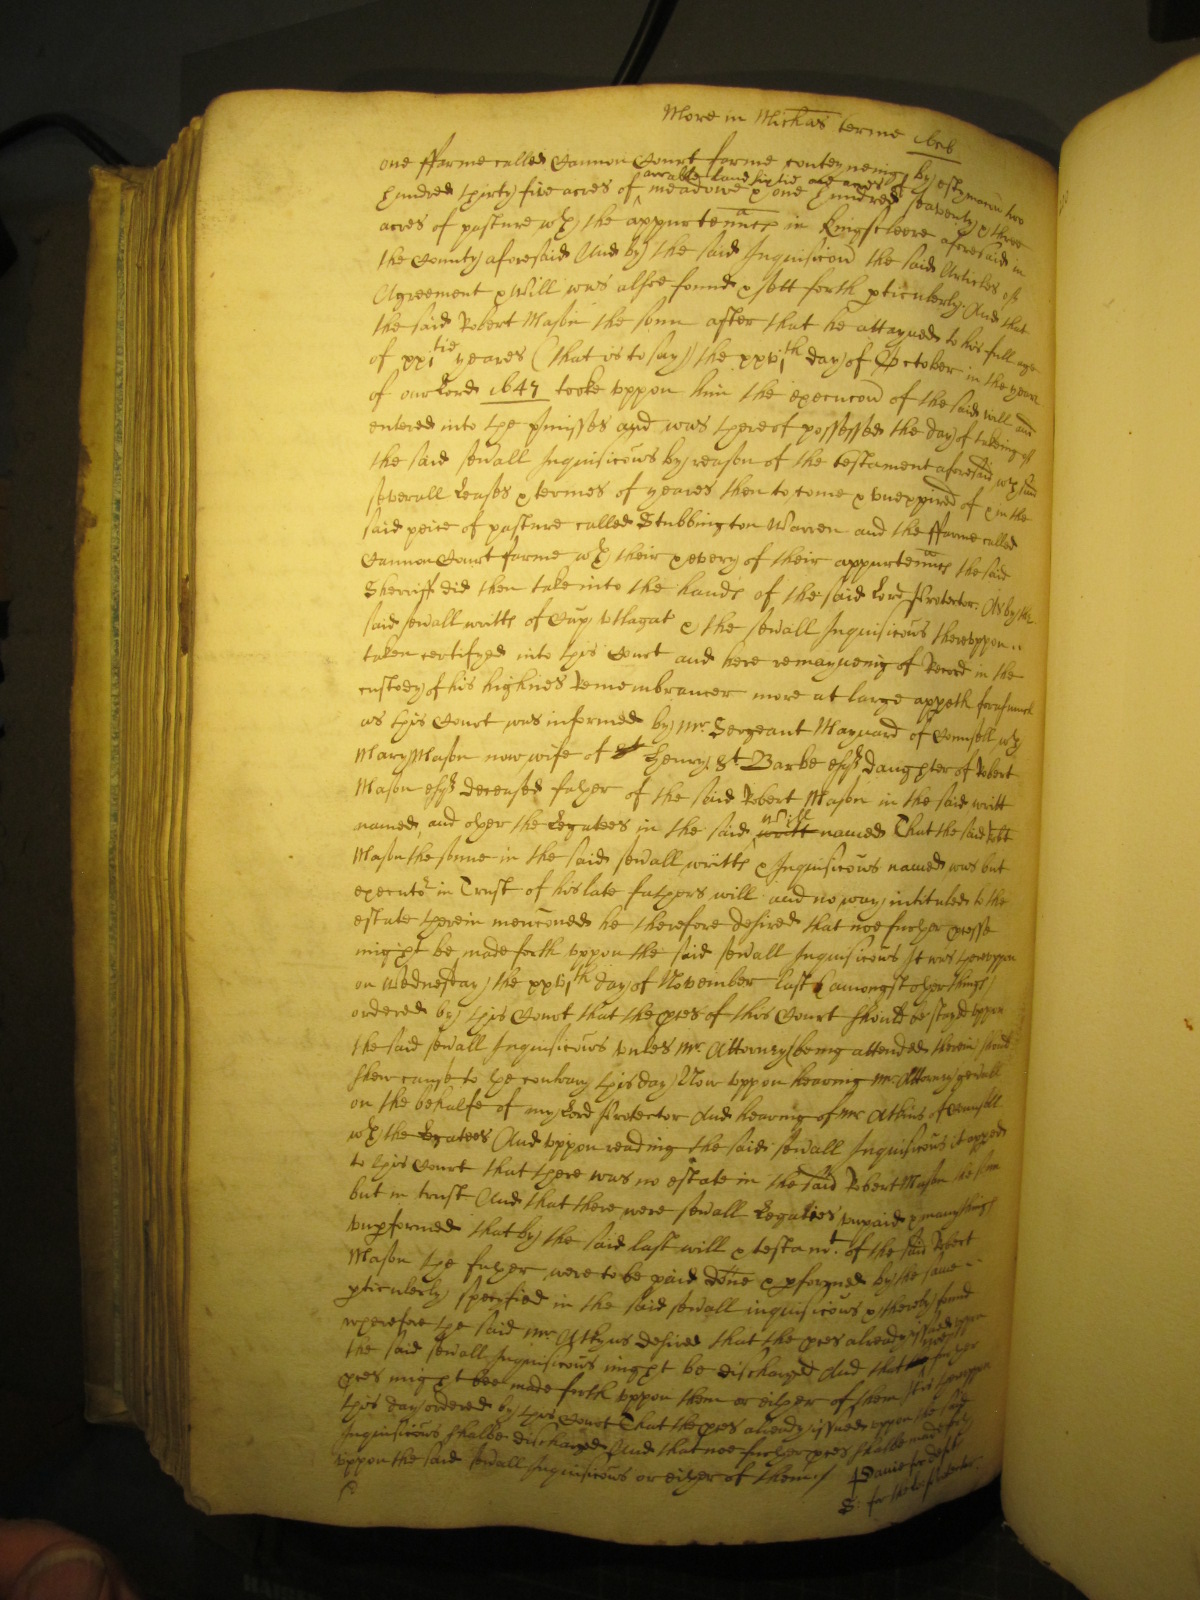 More in Michas terme 1656
one ffarme called Cannon Court farme conteyneing by estymacon two
hundred thirty five acres of arrable land sixtie one acres of meadowe & one hundred seaventy & three
acres of pasture wth the appurtennces in Kingscleere aforesaid in
the County aforesaid And by the said Inquisicon the said Articles of
Agreement & Will was alsoe found & sett forth pticulerly. And that
the said Robert Mason the sonn after that he attayned to his full age
of xxi tie yeares (that is to say) the xxvi th day of October in the yeare
of our Lord 1647 tooke uppon him the execucon of the said will and
entered into the pmisses and was thereof possessed the day of takeing of
the said sevall Inquisicons by reason of the testament aforesaid, wth said
severall Leases & termes of yeares then to come & unexpired of & in the
said peice of pasture called Stubbington Warren and the ffarme called
Cannon Court farme wth their & every of their appurtennces the said
Sherriff did then take into the hands of the said Lord Protector. As by the
said sevall writts of Cap Utlagat & the sevall Inquisicons thereuppon
taken certifyed into this Court and here remayneing of Record in the
custody of his highnes Remembrancer more at large appeth forasmuch
as this Court was informed by Mr Sergeant Maynard of Counsell wth
Mary Mason now wife of St Henry St Barbe esqr daughter of Robert
Mason esqr deceased father of the said Robert Mason in the said writt
named, and other the Legatees in the said writt will named That the said Robt
Mason the sonne in the said sevall writts & Inquisicons named was but
executor in Trust of his late fathers will and no way intituled to the
estate therein menconed he therefore desired that noe further presse
might be made forth uppon the said sevall Inquisicons It was thereuppon
on Wednesday the xxvi th day of November last (amongst other things)
ordered by this Court that the pces of this Court should be stayd uppon
the said sevall Inquisicons unles Mr Attorney (being attended therein) should
shew cause to the contrary this day Now uppon heareing Mr Attorny genall
on the behalfe of my Lord Protector And heareing of Mr Atkins of Counsell
wth the Legatees And uppon reading the said sevall Inquisicons it apped
to this Court that there was no estate in the said Robert Mason the sonn
but in trust And that there were sevall Legacies unpaid & many things
unpformed that by the said last will & testamt. of the said Robert
Mason the father were to be paid done & pformed by the same
pticulerly specified in the said sevall inquisicons & thereby found
wherefore the said Mr Atkyns desired that the pces already issued uppon
the said sevall Inquisicons might be discharged And that noe further
pces might bee made forth uppon them or either of them It is thereuppon
this day ordered by this Court That the pces already issued uppon the said
Inquisicons shalbe discharged And that noe further pces shalbe made forth
uppon the said sevall Inquisicons or either of them./